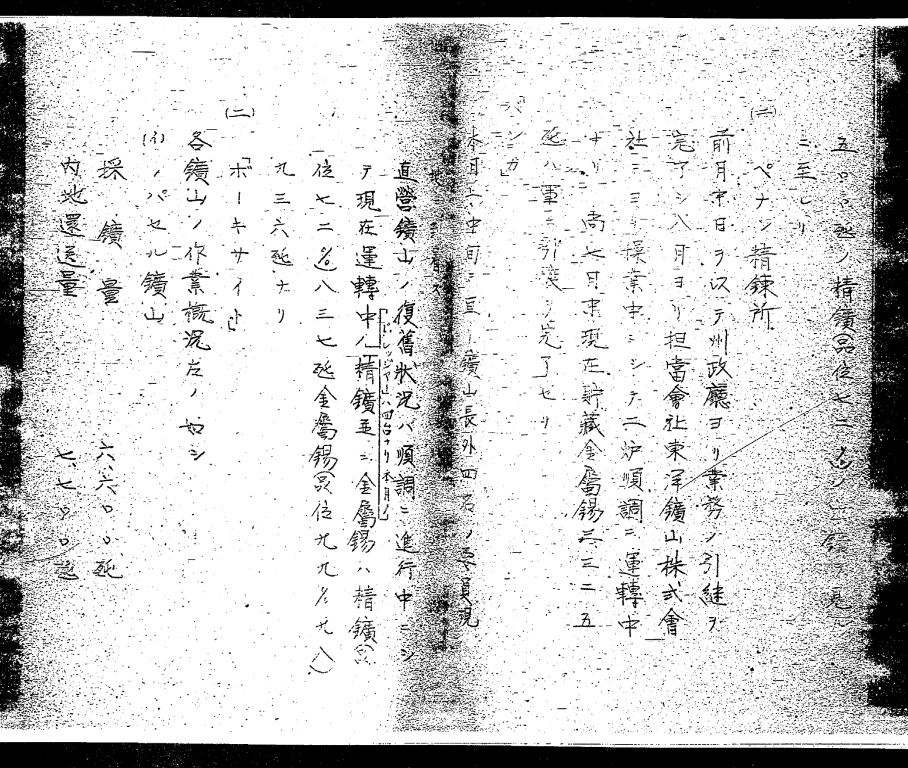 五〇〇瓲ノ精鑛(品位七二%)ノ
ニ至レリ
(二) ペナン精錬所
前月末日ヲ以テ州政廳ヨリ業務ノ引継ヲ
完了シ八月ヨリ担當會社東洋鑛山株式會
社ニヨリ操業中ニシテ二炉順調ニ運轉中
ナリ 尚七月末現在貯蔵金屬錫三三二五
瓲ハ軍ニ引渡ノ完了セリ
「バンカ」
本月六中旬ニ亘リ鑛山長外四名ノ委員現
直營鑛山ノ復舊狀況ハ順調ニ進行中ニシ
「ドレッジャー」ハ四台ナリ本月ノ
テ現在運轉中ハ精鑛並ニ金屬錫ハ精鑛(品
位七二%)八三七瓲金屬錫(品位九九%九八)
九三六瓲ナリ
(二) 「ボーキサイト」
各鑛山ノ作業概況左ノ如シ
(イ) バセル鑛山
採鑛量 六、六〇〇瓲
内地還送量 七、七〇〇瓲